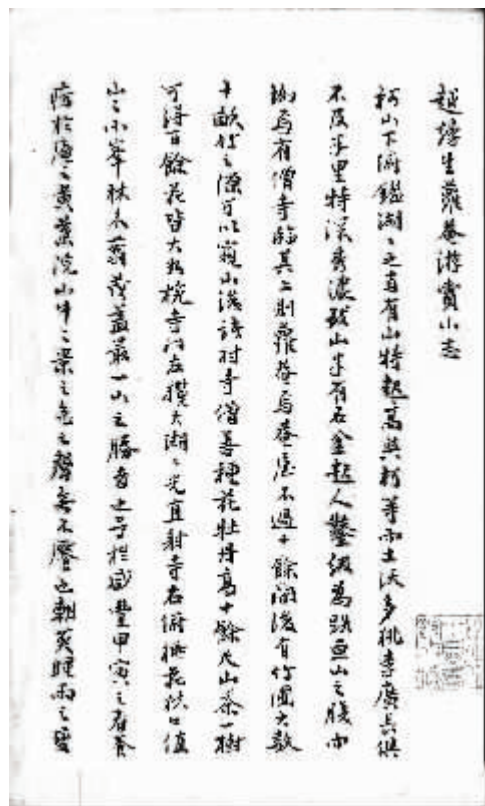 越縵生蘿菴游賞小志
柯山下俯鑑湖〻之直有山特起高與柯等而土沃多桃李廣長俱
不及半里特深秀濃山半有石起人鑿級為山之腹而
拗焉有僧寺臨其上則蘿菴焉菴屋不過十餘間後有竹園大數
十畝竹之隙可以窺山溪村寺僧善種花牡丹高十餘尺山茶一樹
可得百餘花皆大於椀寺門左攬大湖〻光直射寺右俯桃花洪口值
山之小峯林木蓊茂蓋最一山之勝者也予於咸豐甲寅之春養
疴於僧之黃葉院山中之景之色之聲無不歷也朝莫晴雨之變